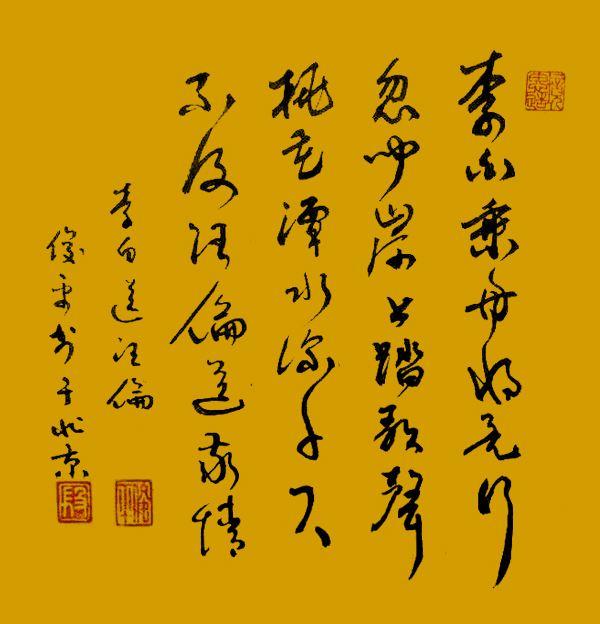 李白乘舟将欲行
忽闻岸上踏歌聲
桃花潭水深千尺
不及汪倫送我情
李白送汪倫
俊平书于北京